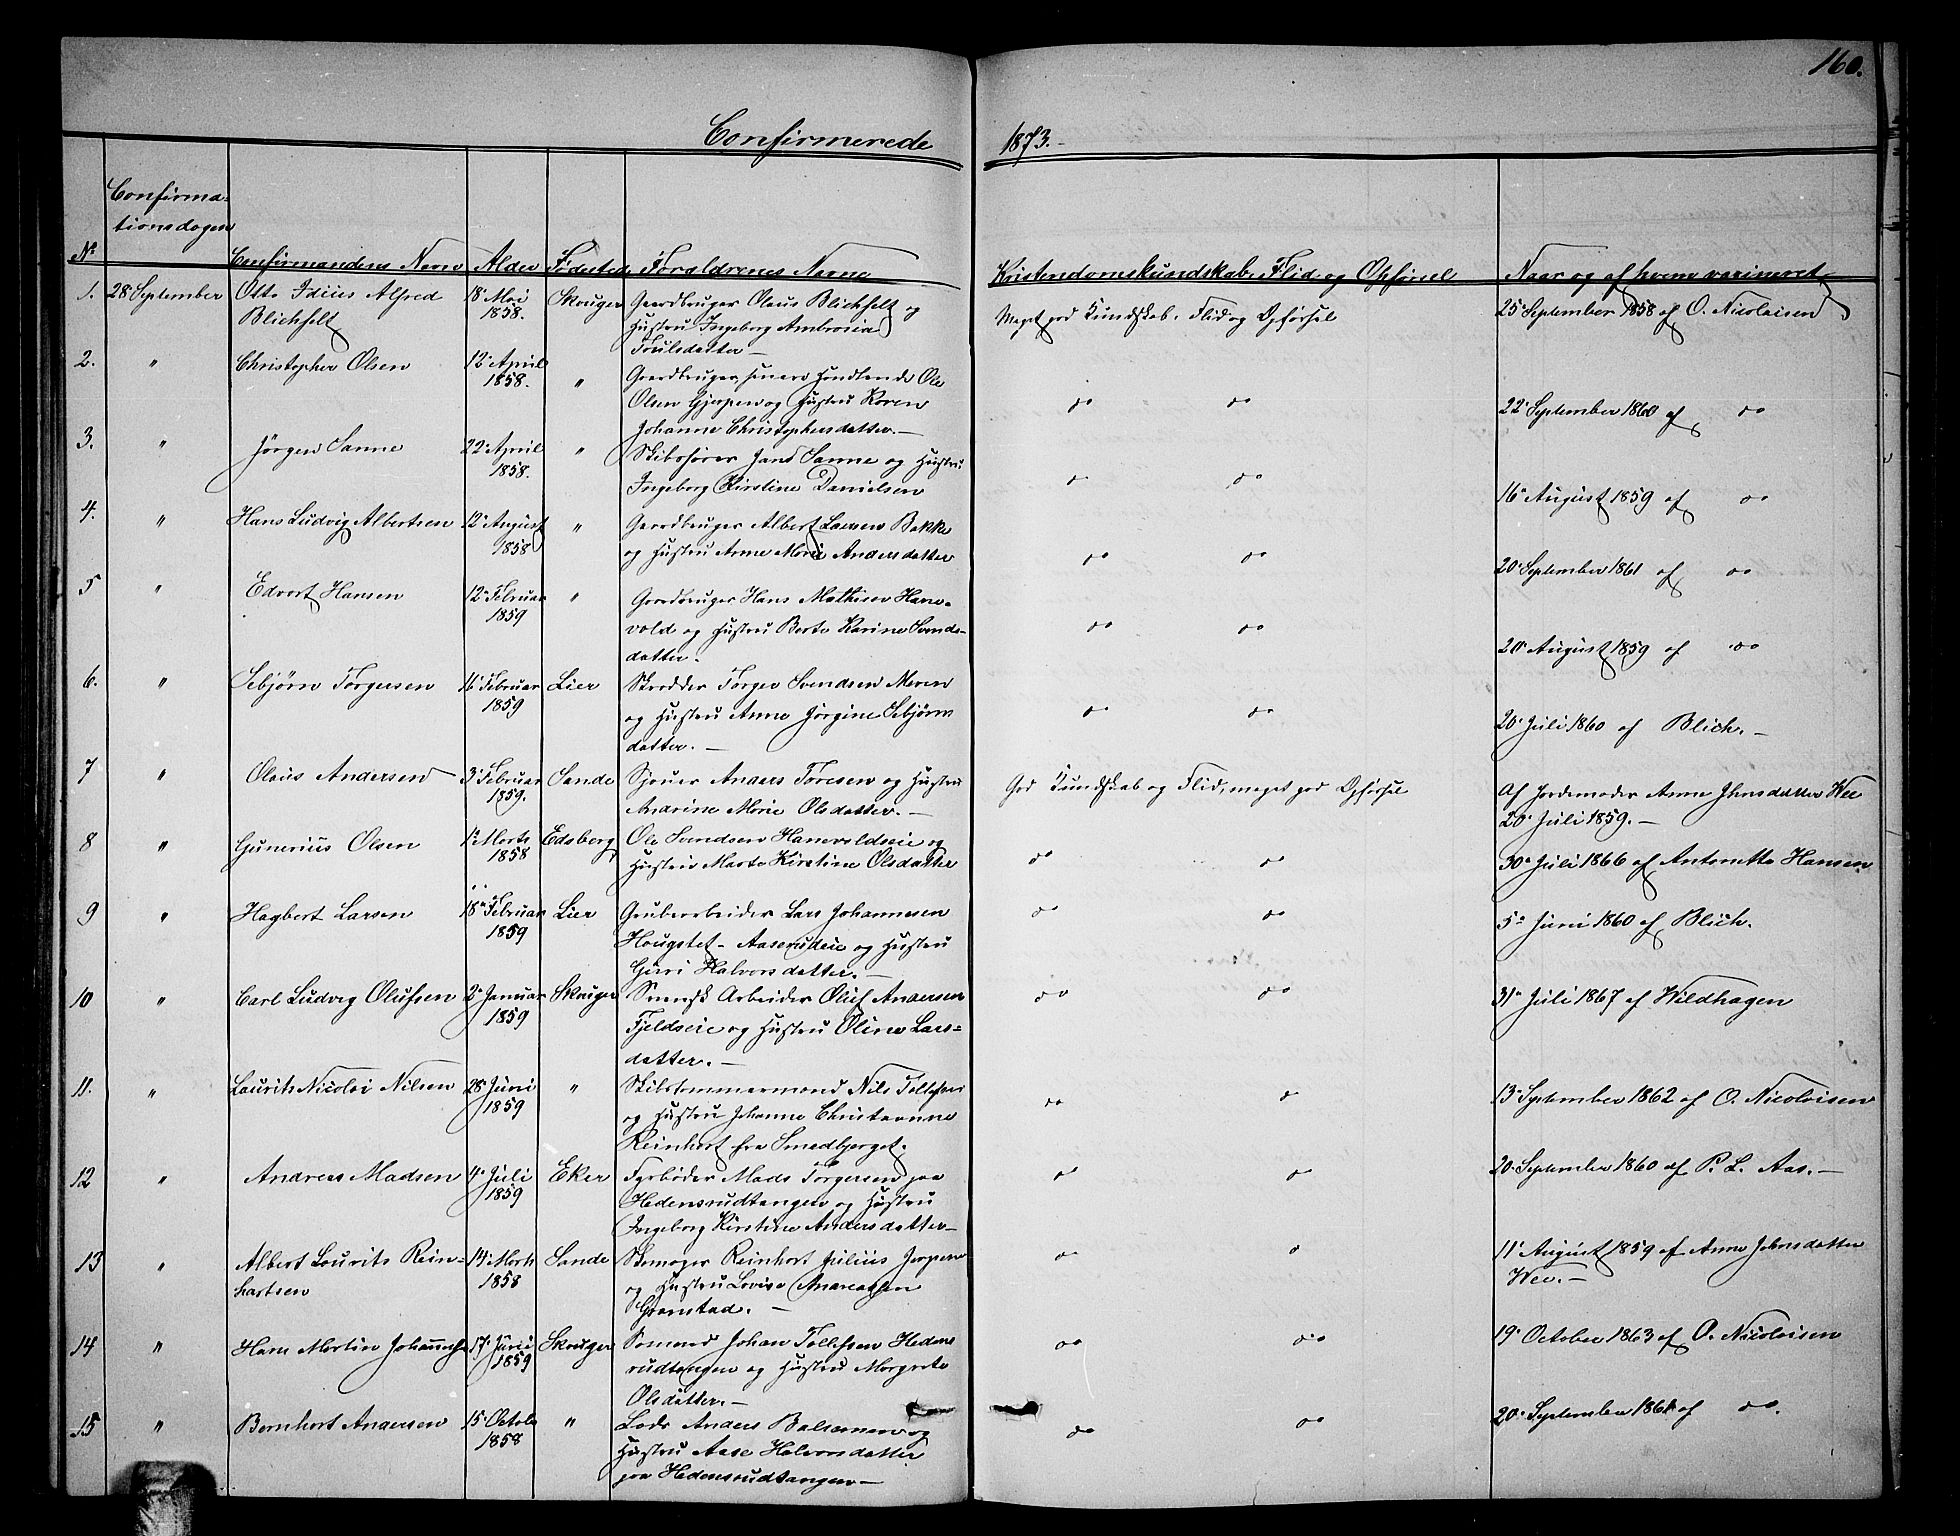 160.
Confirmerede 1873.
Confirma-
tionsdagen
No Confirmandens Navn Alder Födested Foræeldrenes Navne Kristendomskundskab, Flid og Opförsel Naar og af hvem vaxineret
1. 28 September Otto Idius Alfred 18 Mai Skouger Gaardbruger Olaus Blichfelt og Meget god Kundskab, Flid og Opförsel 25 September 1858 af O. Nicolaisen
Blichfelt 1858. Hustru Ingeborg Ambrosia
datter
2. " Christopher Olsen 12 April " Gaardbruger, senere Handlende Ole do do 22 September 1860 af do
1858. Olsen Gjerpen og Hustru Karen
Johanne Christophersdatter.
3. " Jörgen Sanne 22 April " Skibsförer Sanne og Hustru do do 16 August 1859 af do
1858. Ingeborg Kirstine Danielsen
4. " Hans Ludvig Albertsen 12 August " Gaardbruger Albert Larsen Bakke do do 20 September 1861 af do
1858 og Hustru Anne Marie Andersdatter
5 " Edvart Hansen 12 Februar " Gaardbruger Hans Mathisen Hane- do do 20 August 1859 af do
1859 vold og Hustru Berte Karine Svends-
datter.
6. " Sebjörn Torgersen 16 Februar Lier Skrædder Torger Svendsen Meren do do 20 Juli 1860 af Blich.
1859 og Hustru Anne Jörgine Sebjörns
datter.
7 " Olaus Andersen 3 Februar Sande Sjouer Anders Toresen og Hustru God Kundskab og Flid, meget god Opförsel Af Jordemoder Anne Jhnsdatter Wee
1859. Andrine Marie Olsdatter. 20 Juli 1859.
8 " Gunerius Olsen 1 Marts Edsberg Ole Svendsen Hanevoldseie og do do 30 Juli 1866 af Antonette Hansen
1858 Hustru Marte Kirstine Olsdatter
9 " Hagbert Larsen 18 Februar Lier Grubearbeider Lars Johannesen do do 5 Juni 1860 af Blich.
1859 Hougstet- Aaserudeie og Hustru
Guri Halvorsdatter.
10 " Carl Ludvig Olufsen 2 Januar Skouger Svensk Arbeider Oluf Andersen do do 31 Juli 1867 af Wildhagen
1859 Fjeldseie og Hustru Oline Lars-
datter.
11. " Laurits Nicolai Nilsen 28 Juni " Skibstømmermand Nils Tollefsen do do 13 September 1862 af O. Nicolaisen
1859 og Hustru Johanne Christianne
Reinhart fra Smedbjerget.
12 " Andreas Madsen 4 Juli Eker Fyrböder Mads Torgersen paa do do 20 September 1860 af P. L. Aas.
1859 Hedensrudtangen og Hustru
Ingeborg Kirstine Andersdatter
13 " Albert Laurits Rein- 14 Marts Sande Skomager Reinhart Julius Jespersen do do 11 August 1859 af Anne Johnsdatter
hartsen 1858 og Hustru Lovise Andreassen Wee.
Granstad.
14 " Hans Martin Johannsen 17 Juni Skouger Somand Johan Tollefsen Hedens do do 19 October 1863 af O. Nicolaisen
1859 rudtangen og Hustru Margrete
Olsdatter.
15 " Bernhart Andersen 15 Octob. " Lods Anders Balsersen og do do 20 September 1861 af do.
1858 Hustru Aase Halvorsdatter
paa Hedensrudtangen